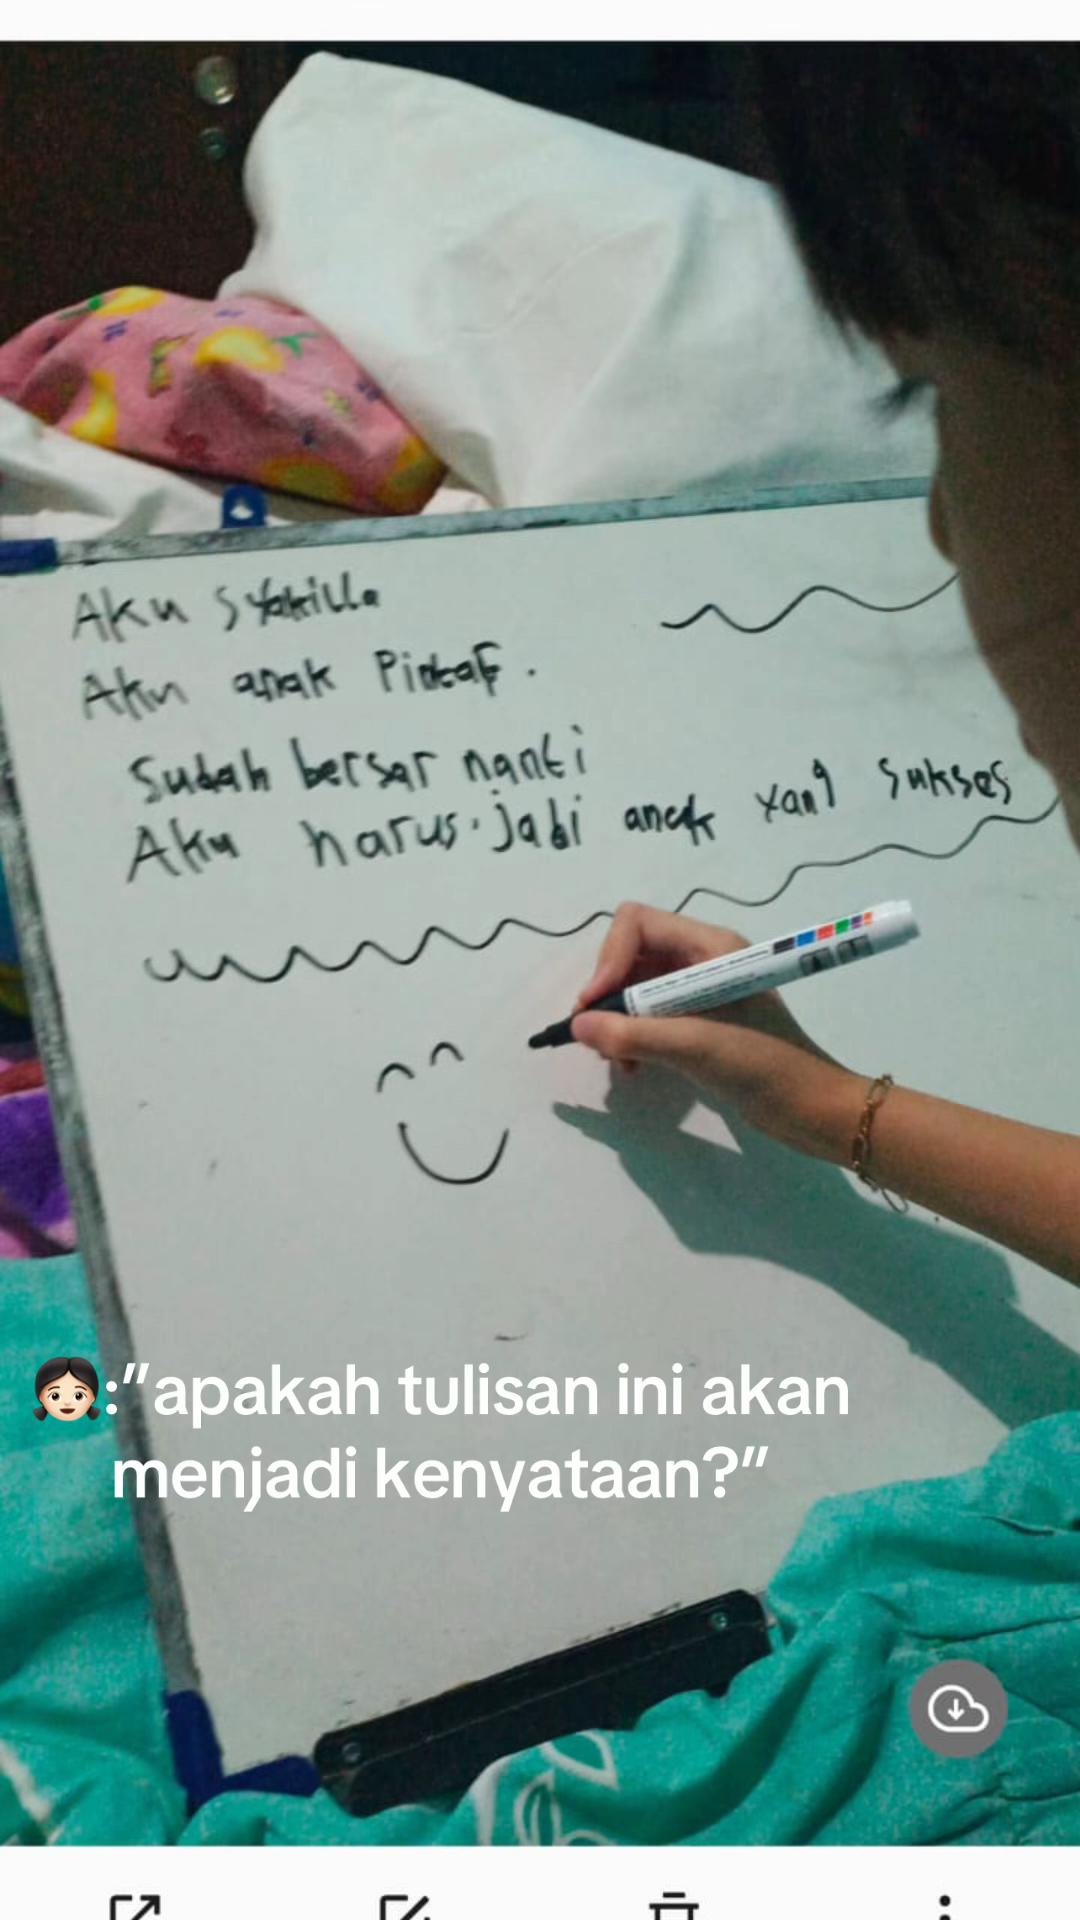 Aku Syakilla
Aku anak Pintar.
Sudah bersar nanti
Aku harus jadi anak yang sukses
👧🏻:"apakah tulisan ini akan
menjadi kenyataan?"